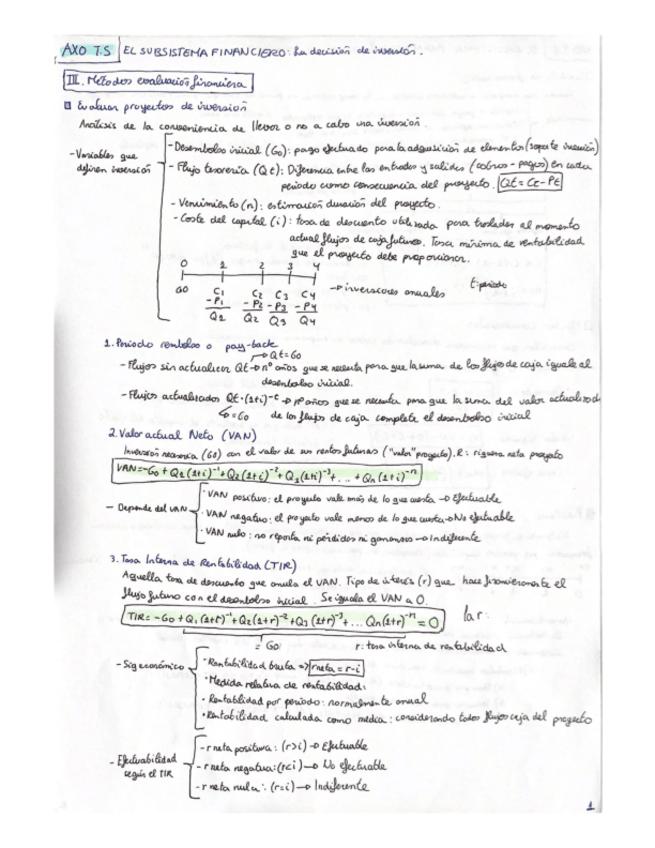 AXO T.5 EL SUBSISTEMA FINANCIERO: La decisión de inversión.
III. Métodos evaluación financiera
Evaluar proyectos de inversión
Análisis de la conveniencia de llevar o no a cabo una inversión.
- Variables que definen inversión
- Desembolso inicial (G0): pago efectuado para la adquisición de elementos (soporte inversión)
- Flujo tesorería (Qt): Diferencia entre las entradas y salidas (cobros - pagos) en cada
periodo como consecuencia del proyecto. Qt = Ct - Pt
- Vencimiento (n): estimación duración del proyecto.
- Coste del capital (i): tasa de descuento utilizada para trasladar al momento
actual flujos de caja futuros. Tasa mínima de rentabilidad
que el proyecto debe proporcionar.
0 1 2 3 4
G0 C1 C2 C3 C4 → inversiones anuales t: periodo
-P1 -P2 -P3 -P4
Q1 Q2 Q3 Q4
1. Periodo reembolso o pay-back
→ Qt = G0
- Flujos sin actualizar Qt → nº años que se necesita para que la suma de los flujos de caja iguale al
desembolso inicial.
- Flujos actualizados Qt·(1+i)^-t → nº años que se necesita para que la suma del valor actualizado
= G0 de los flujos de caja complete el desembolso inicial
2. Valor actual Neto (VAN)
Inversión necesaria (G0) con el valor de sus rentas futuras ("valor" proyecto). R: riqueza neta proyecto
VAN = -G0 + Q1(1+i)^-1 + Q2(1+i)^-2 + Q3(1+i)^-3 + ... + Qn(1+i)^-n
- Depende del VAN
· VAN positivo: el proyecto vale más de lo que cuesta → Efectuable
· VAN negativo: el proyecto vale menos de lo que cuesta → No efectuable
· VAN nulo: no reporta ni pérdidas ni ganancias → Indiferente
3. Tasa Interna de Rentabilidad (TIR)
Aquella tasa de descuento que anula el VAN. Tipo de interés (r) que hace financieramente el
flujo futuro con el desembolso inicial. Se iguala el VAN a 0.
TIR = -G0 + Q1(1+r)^-1 + Q2(1+r)^-2 + Q3(1+r)^-3 + ... Qn(1+r)^-n = 0 la r:
= G0 r: tasa interna de rentabilidad
- Sig económico
· Rentabilidad bruta ⇒ rneta = r - i
· Medida relativa de rentabilidad:
· Rentabilidad por periodo: normalmente anual
· Rentabilidad calculada como media: considerando todos flujos caja del proyecto
- Efectuabilidad según el TIR
- r neta positiva: (r>i) → Efectuable
- r neta negativa: (r<i) → No efectuable
- r neta nula: (r=i) → Indiferente
1